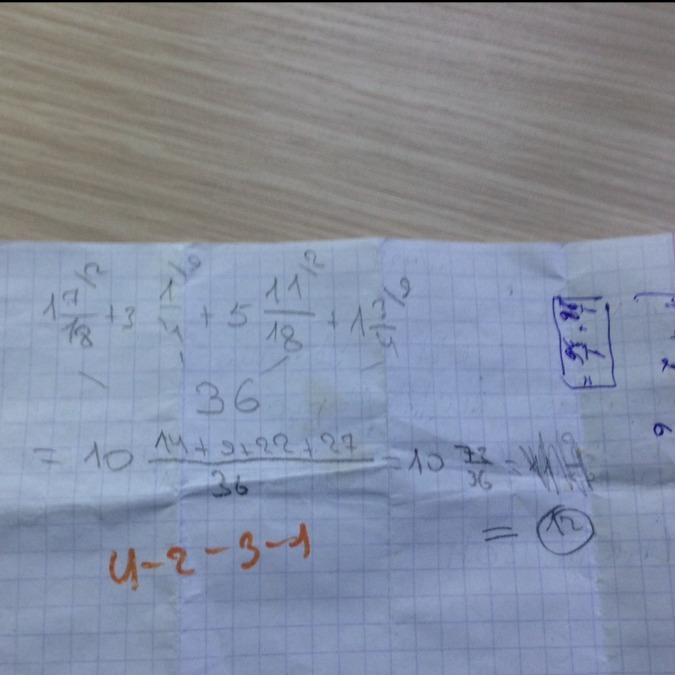 1 7/18 /2 + 3 1/4 /9 + 5 11/18 /2 + 1 3/4 /9
36
= 10 14+9+22+27/36 = 10 72/36 =
= 12
4-2-3-1